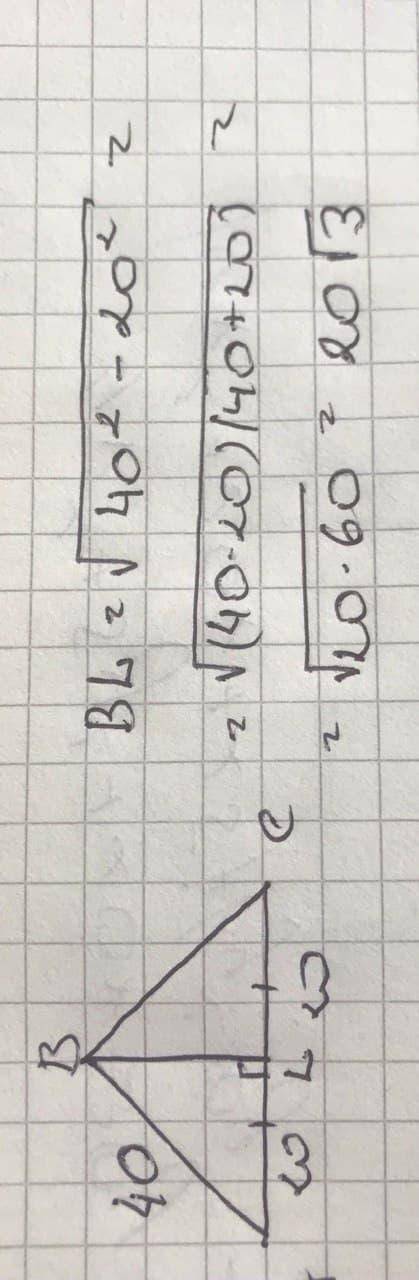 B
40
20 L 20 C
BL = √40² - 20² =
= √(40-20)(40+20) =
= √20·60 = 20√3